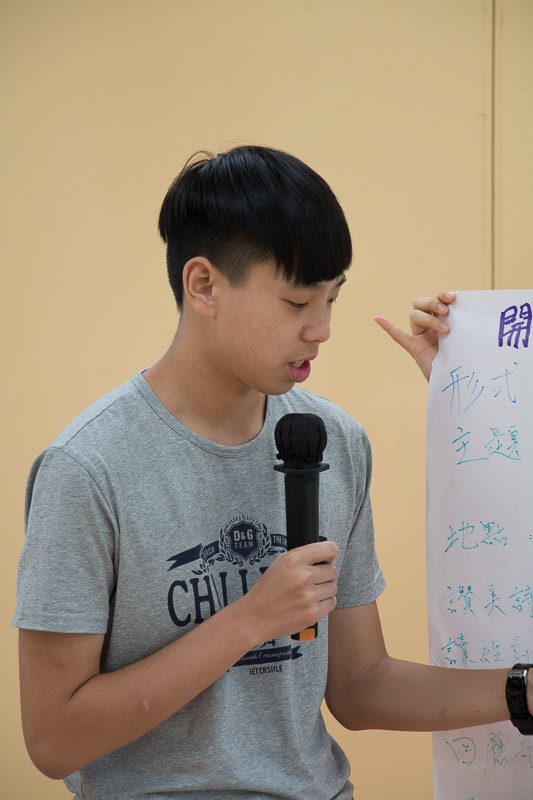 D&G
TEAM
IETERSIILE
開
形式
主題
地點:
讚美詩
讀經
回應